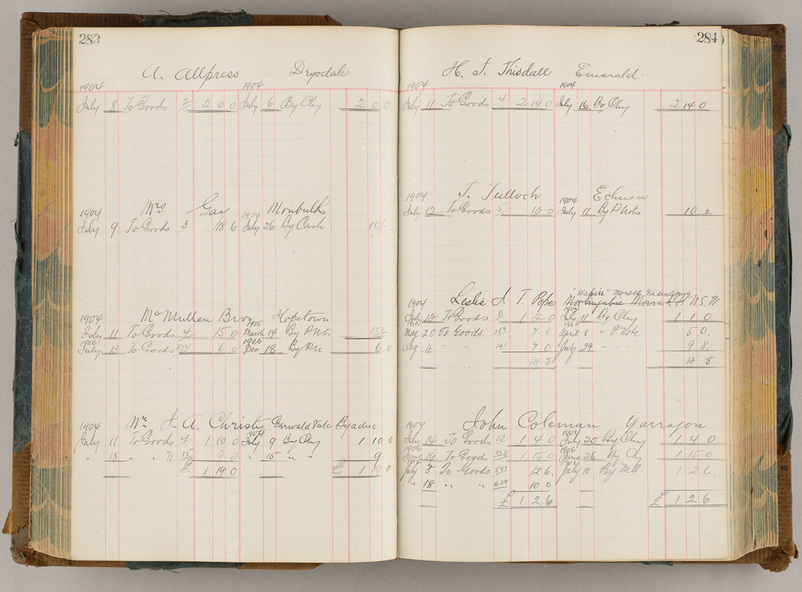 283
A. Allpress Drysdale
1904 1904
July 8 To Goods 2 2 0 0 July 6 By Chq 2 0 0
1904 Mrs Gay Monbulk
1904
July 9 To Goods 3 18 6 July 26 By Cash 10/-
1904 McMullen Bros Hopetown
July 11 To Goods 4 15 0 1905 March 14 By P Note 15/-
1906 July 13 To Goods 6 0 1906 Dec 18 By 6 0
1904 Mr A. Christy Vale Byaduc
July 11 To Goods 4 1 10 0 July 9 By Chq 1 10 0
" 18 " " 15 9 0 " 15 " 9
£ 1 19 0 £ 1 9 0
284
H. J. Thisdall Emerald
1904 1904
July 11 To Goods 4 2 14 0 July 16 By Chq 2 14 0
1904 T. Tulloch Echuca
1904
July 12 To Goods 5 10 0 July 11 By P Note 10 0
1904 Leslie A T. Pope N.S.W
July 12 To Goods 6 1 2 0 July 11 By Chq 1 1 0
May 20 To Goods 7 8 April 8 " P. Note 5 0
Aug 4 " " 7 0 July 29 " " 9 8
14 8 14 8
1904 John Coleman Yarragon
July 14 To Goods 10 1 4 0 1904 July 20 By Chq 1 4 0
1906 19 To Goods 1 15 0 1906 June 26 By Chq 1 15 0
July 3 To Goods 12 6 July 10 By 1 2 6
" 18 " " 10 0
£ 1 2 6 £ 1 2 6